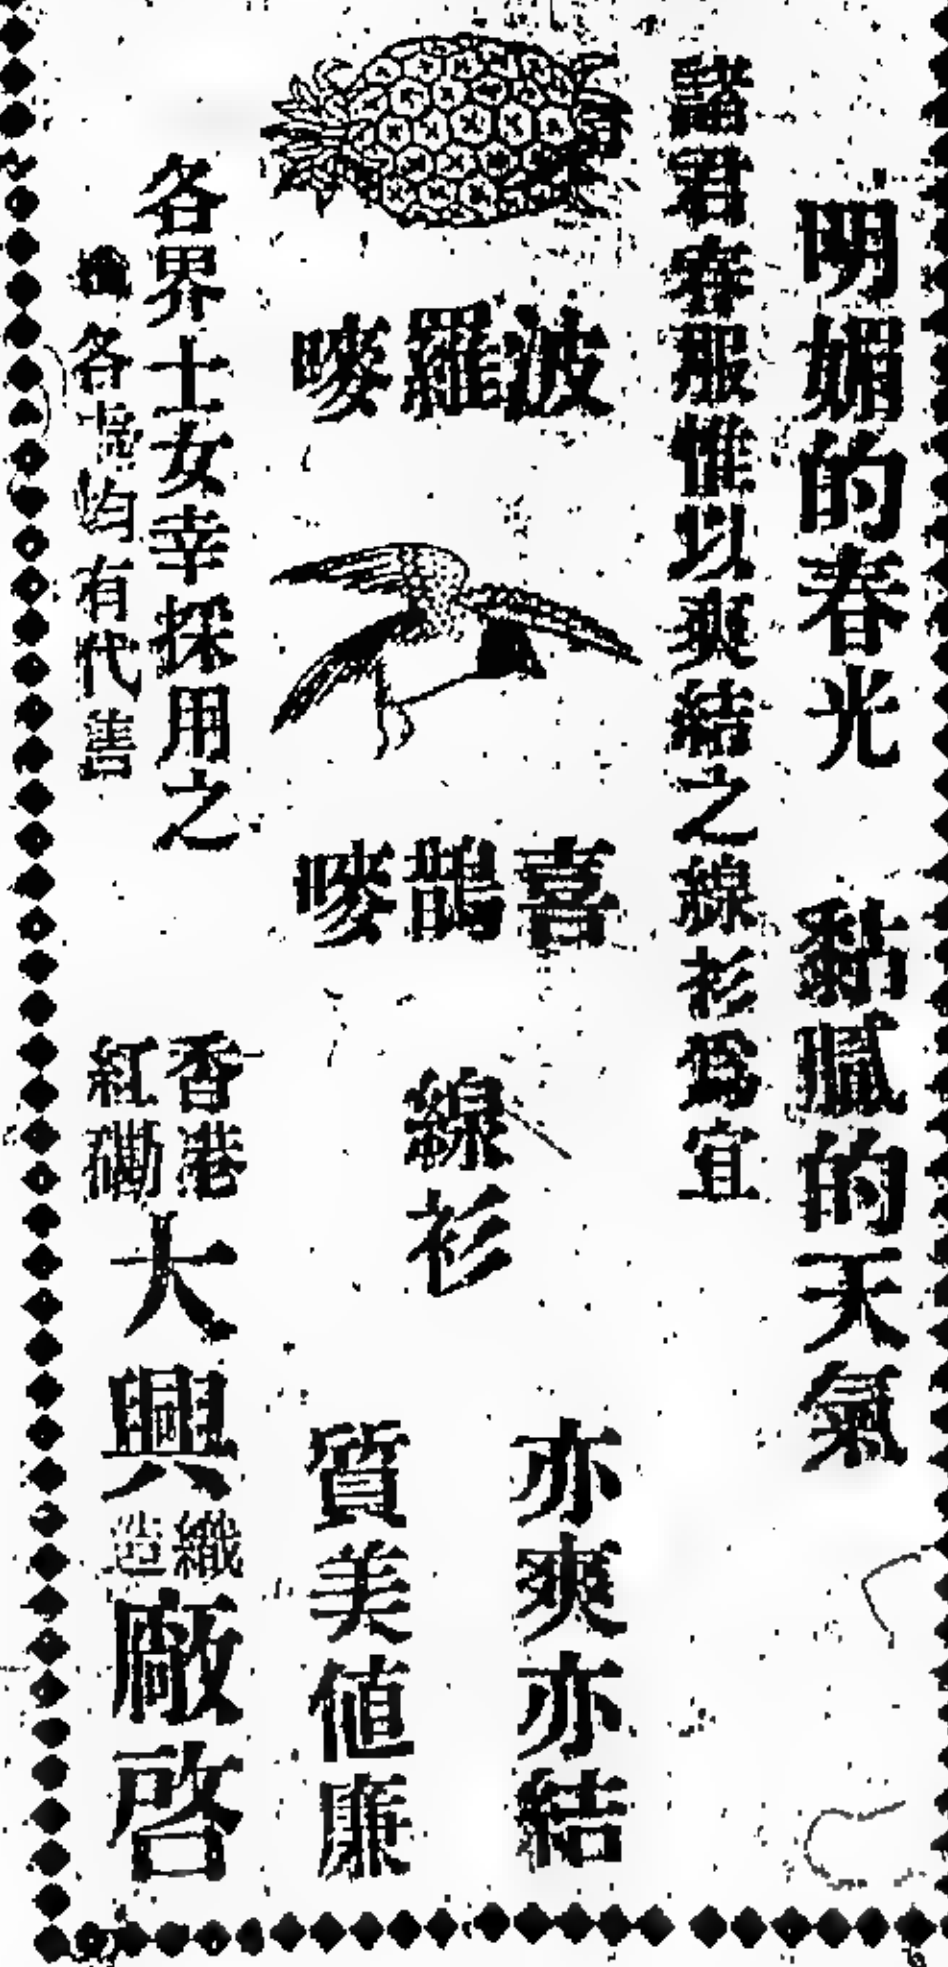 明媚的春光　黏膩的天氣
諸君春服惟以爽結之線衫爲宜
波羅嘜
喜鵲嘜
線衫
亦爽亦結
質美值廉
各界士女幸採用之
各有代售
香港
紅磡
大興織造廠啓